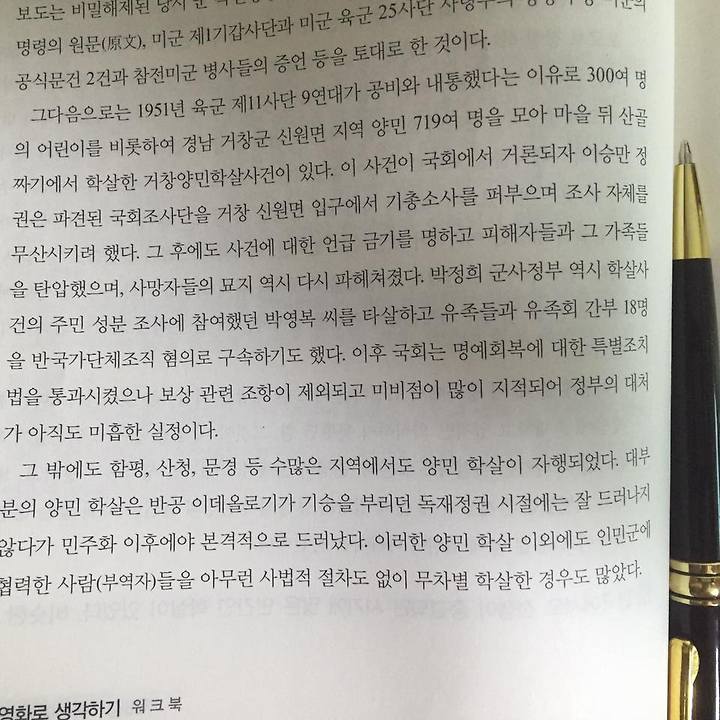 보도는 비밀해제된 당시
명령의 원문(原文), 미군 제1기갑사단과 미군 육군 25사단 사령부의
공식문건 2건과 참전미군 병사들의 증언 등을 토대로 한 것이다.
그다음으로는 1951년 육군 제11사단 9연대가 공비와 내통했다는 이유로 300여 명
의 어린이를 비롯하여 경남 거창군 신원면 지역 양민 719여 명을 모아 마을 뒤 산골
짜기에서 학살한 거창양민학살사건이 있다. 이 사건이 국회에서 거론되자 이승만 정
권은 파견된 국회조사단을 거창 신원면 입구에서 기총소사를 퍼부으며 조사 자체를
무산시키려 했다. 그 후에도 사건에 대한 언급 금기를 명하고 피해자들과 그 가족들
을 탄압했으며, 사망자들의 묘지 역시 다시 파헤쳐졌다. 박정희 군사정부 역시 학살사
건의 주민 성분 조사에 참여했던 박영복 씨를 타살하고 유족들과 유족회 간부 18명
을 반국가단체조직 혐의로 구속하기도 했다. 이후 국회는 명예회복에 대한 특별조치
법을 통과시켰으나 보상 관련 조항이 제외되고 미비점이 많이 지적되어 정부의 대처
가 아직도 미흡한 실정이다.
그 밖에도 함평, 산청, 문경 등 수많은 지역에서도 양민 학살이 자행되었다. 대부
분의 양민 학살은 반공 이데올로기가 기승을 부리던 독재정권 시절에는 잘 드러나지
않다가 민주화 이후에야 본격적으로 드러났다. 이러한 양민 학살 이외에도 인민군에
협력한 사람(부역자)들을 아무런 사법적 절차도 없이 무차별 학살한 경우도 많았다.
영화로 생각하기 워크북